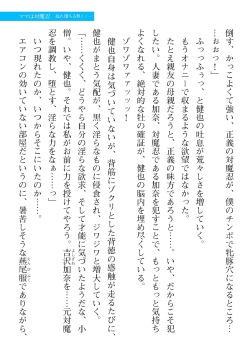 ママは対魔忍
倒す、かっこよくて強い、正義の対魔忍が、僕のチンポで牝豚穴になるところ…
…おおっ！」
ふっっふぅっ、と健也の吐息が荒々しさを増していく。
もうオナニーで収まるような欲望ではなかった。
たとえ親友の母親だろうと、正義の味方であろうと……いや、だからこそ犯
したい。人妻である加奈を、対魔忍である加奈を犯すことで、もっともっと気持ち
よくなれる。絶対的な牡の確証が、健也の脳内を埋め尽くす。
健也自身は気づいていないが、背筋にゾクリとした背徳の感触が走るたびに、
健也がまとう気配が、黒く淫らなものに侵食され、ジワジワと増大していく。
「……くくく、どうやら自分の淫らな欲求、そして才能に気づいたようだな、小
僧。いや、健也。それでは私がお前に力を授けてやろう。吉沢加奈を……元対魔
忍を調教し、堕とす、淫らな力をなぁ……っ」
いつ現れたのか、いつからそこにいたのか……。
エアコンの効いていない部屋だというのに、暑苦しそうな燕尾服でありながら、